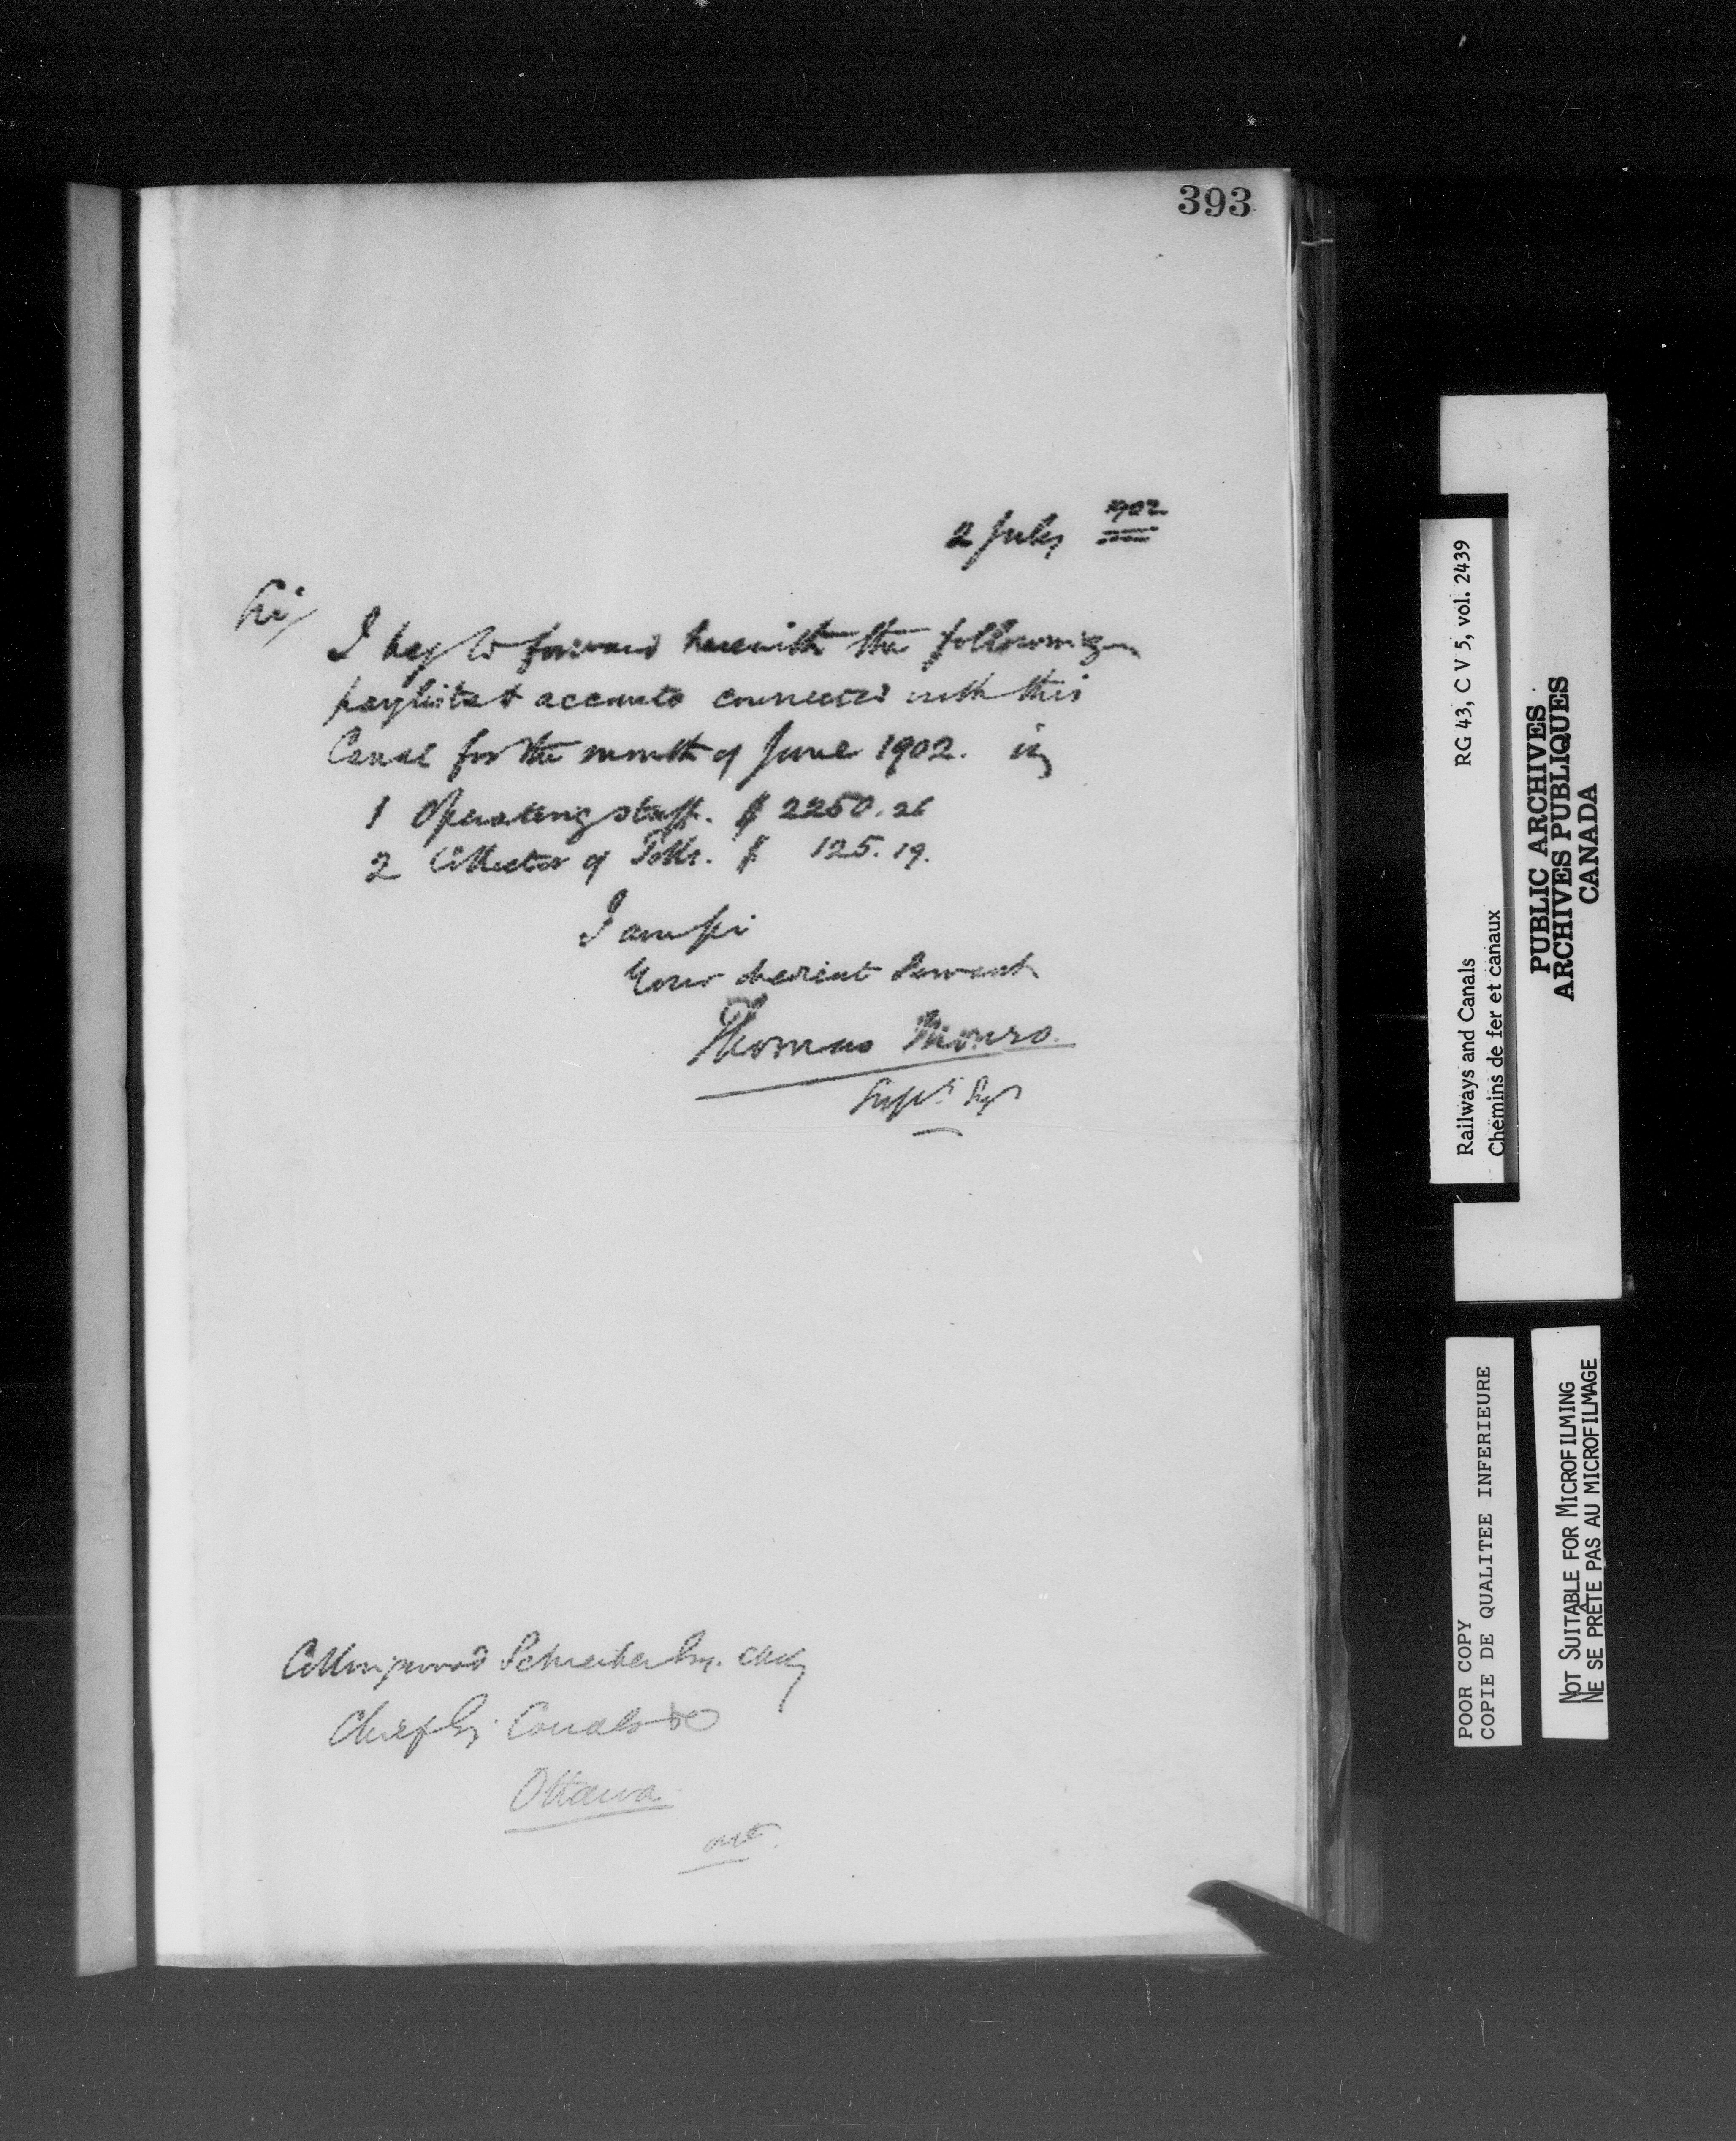 393
2 July 1902
Sir/
I beg to forward herewith the following
paylists & accounts connected with this
Canal for the month of June 1902. viz
1 Operating staff. $ 2250.26
2 Collector of Tolls. $ 125.19.
I am Sir
Your obedient Servant
Thomas Monro.
Supt.
Collingwood Schreiber Esq. CMG
Chief Eng. Canals &c
Ottawa
RG 43, C V 5, vol. 2439
Railways and Canals
Chemins de fer et canaux
PUBLIC ARCHIVES
ARCHIVES PUBLIQUES
CANADA
POOR COPY
COPIE DE QUALITEE INFERIEURE
NOT SUITABLE FOR MICROFILMING
NE SE PRÊTE PAS AU MICROFILMAGE